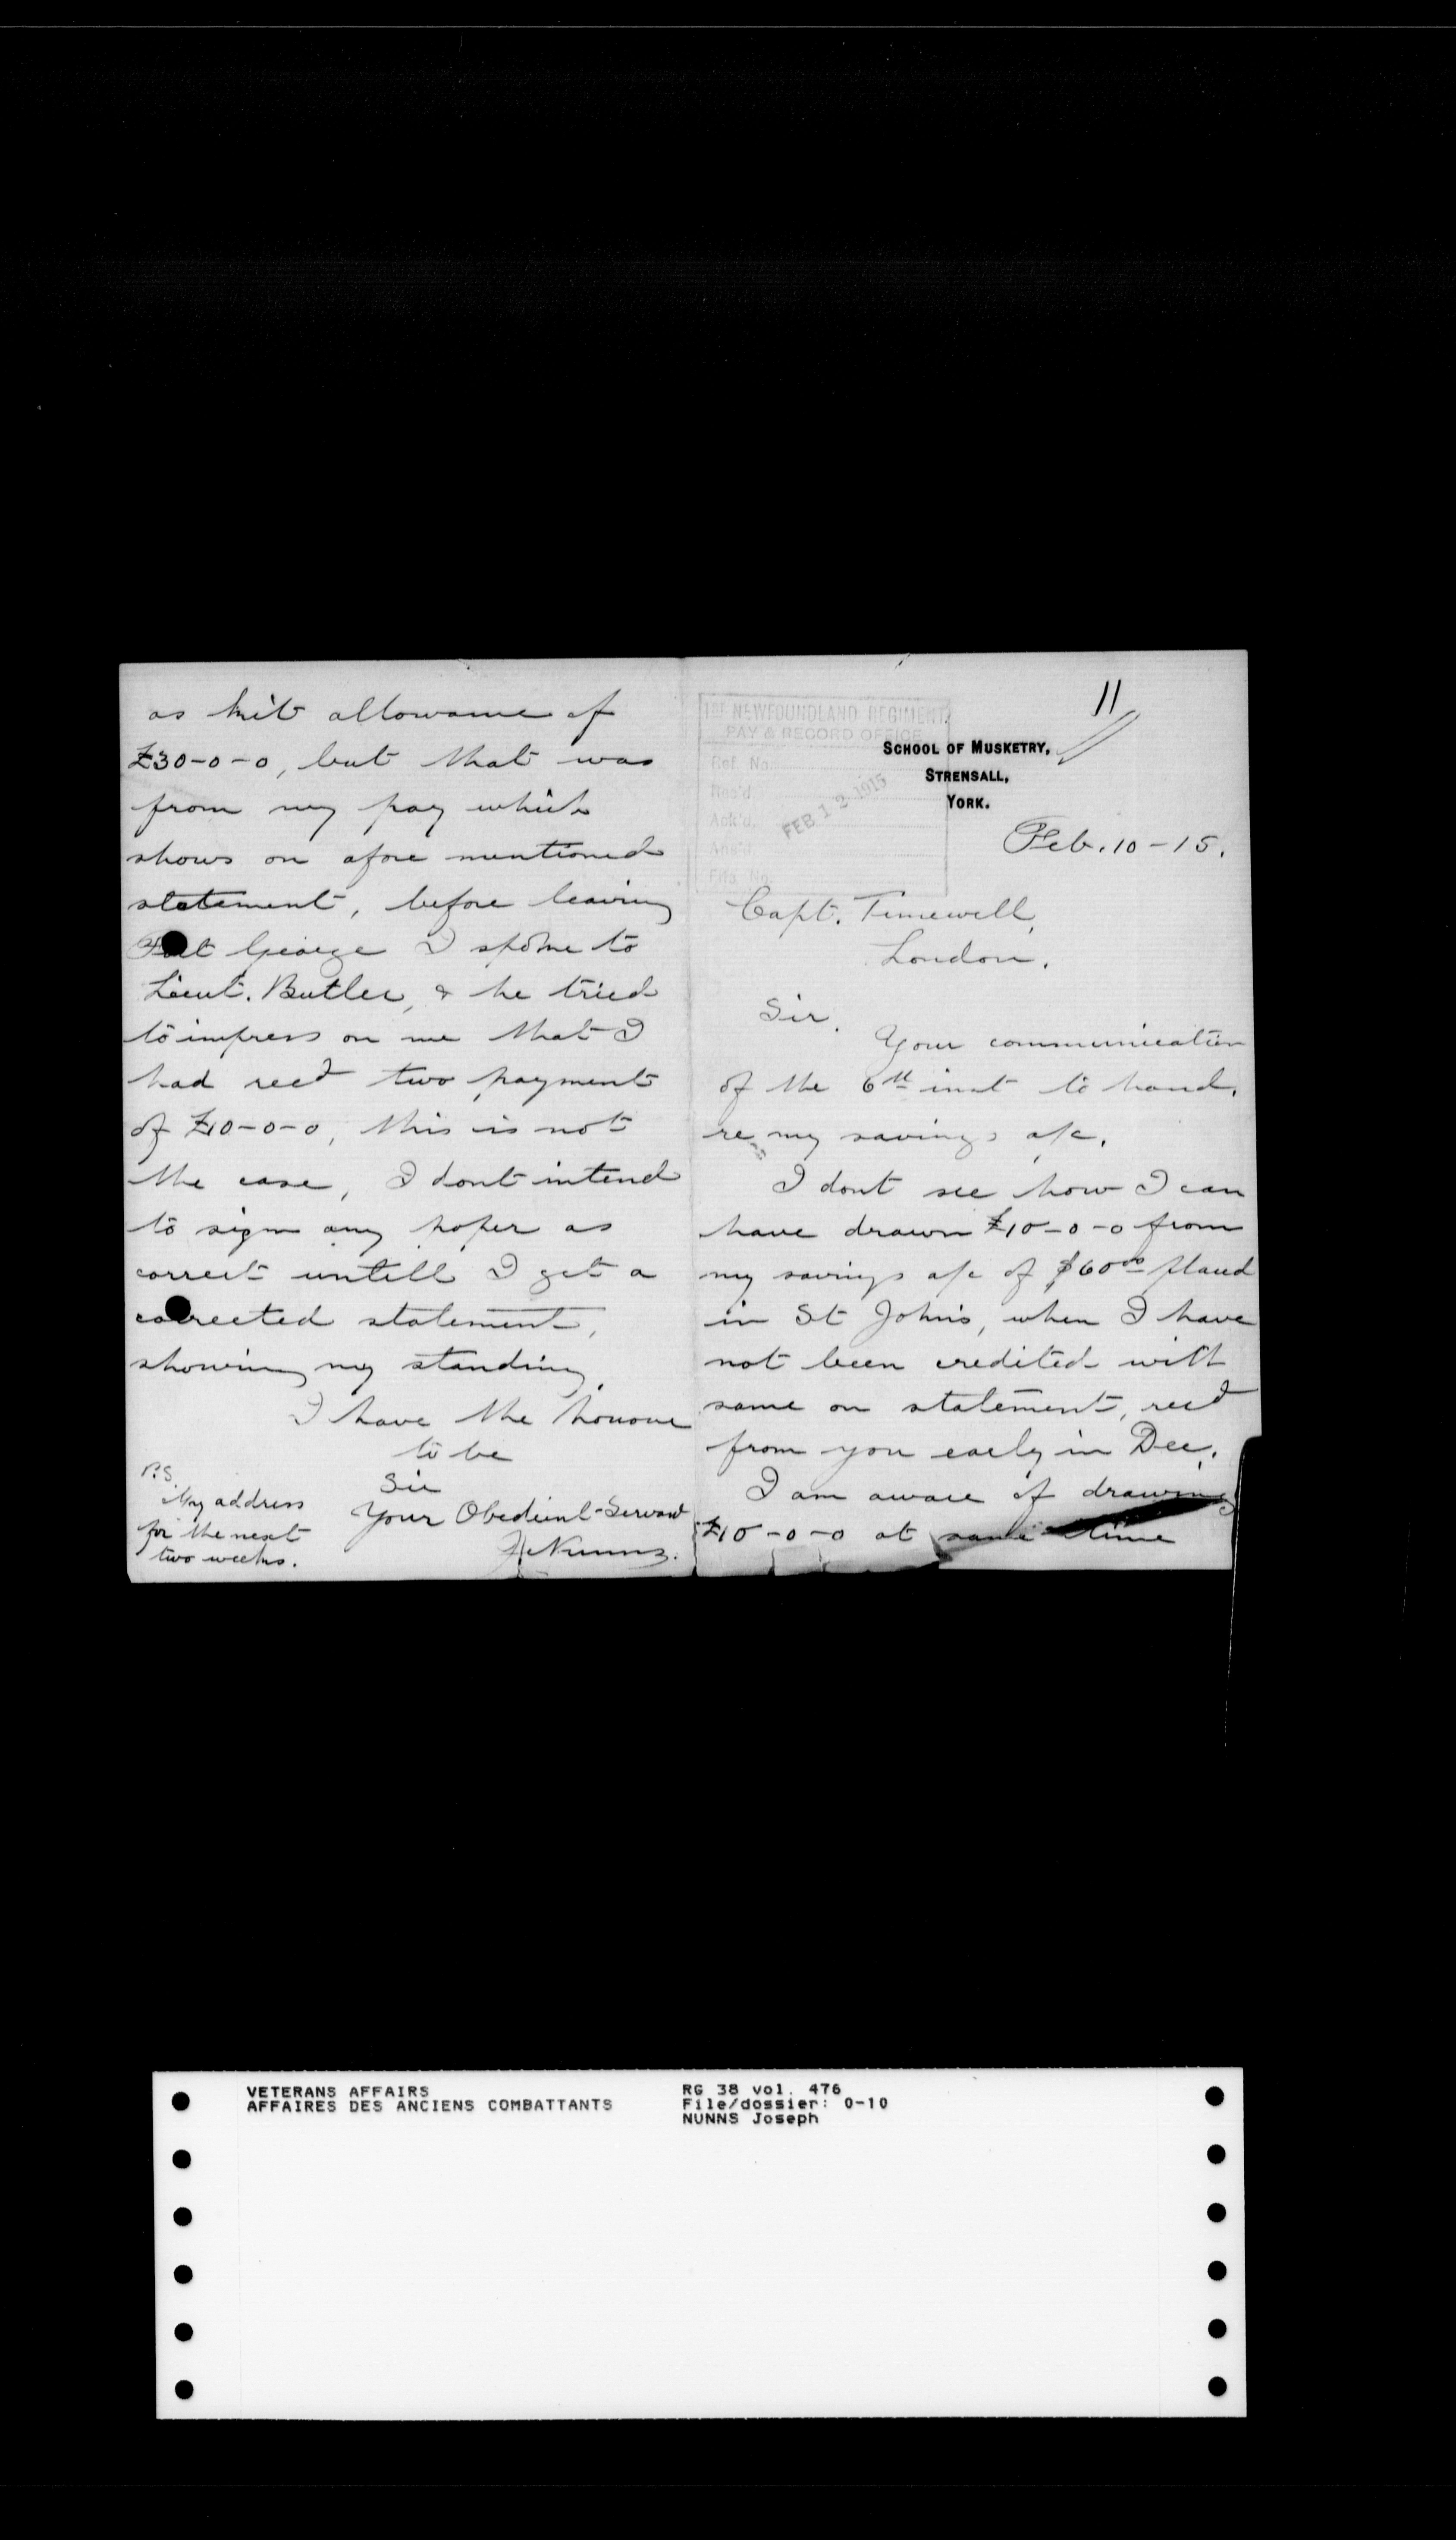 11
1ST NEWFOUNDLAND REGIMENT
PAY & RECORD OFFICE
Ref. No.
Rec'd.
Ack'd.
Ans'd.
File No.
FEB 12 1915
SCHOOL OF MUSKETRY,
STRENSALL,
YORK.
Feb. 10-15.
Capt. Timewell,
London.
Sir.
Your communication
of the 6th inst to hand.
re my savings a/c.
I dont see how I can
have drawn £10-0-0 from
my savings a/c of $60 00 placed
in St Johns, when I have
not been credited with
same on statement, recd
from you early in Dec.
I am aware of drawing
£10-0-0 at same time
as kit allowance of
£30-0-0, but that was
from my pay which
shows on afore mentioned
statement, before leaving
Fort George I spoke to
Lieut. Butler, & he tried
to impress on me that I
had recd two payments
of £10-0-0, this is not
the case, I dont intend
to sign any paper as
correct untill I get a
corrected statement,
showing my standing.
I have the honour
to be
Sir
Your Obedient Servant
J Nunns.
P.S.
My address
for the next
two weeks.
VETERANS AFFAIRS
AFFAIRES DES ANCIENS COMBATTANTS
RG 38 vol. 476
File/dossier: 0-10
NUNNS Joseph